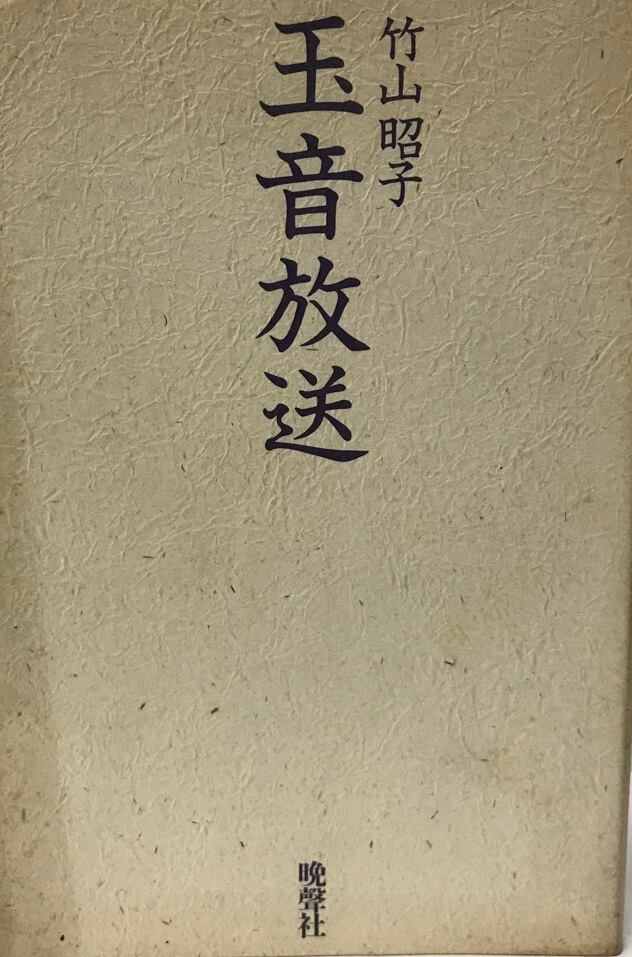 竹山昭子
玉音放送
晩聲社